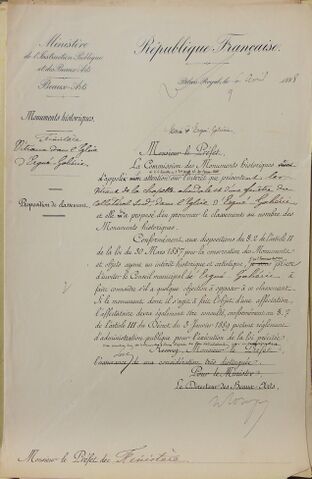 Ministère
de l'Instruction Publique
et des Beaux-Arts
Beaux-Arts
Monuments historiques.
Finistère
Vitraux dans l'Eglise
d'Ergué Gabéric
Proposition de classement.
République Française.
Palais-Royal, le avril
9
Ergué Gabéric
Monsieur le Préfet,
La Commission des Monuments historiques
d'appeler mon attention sur l'intérêt que présentent les
vitraux de la chapelle absidale et d'une fenêtre du
collatéral sud dans l'Eglise d'Ergué Gabéric
et elle m'a proposé d'en prononcer le classement au nombre des
Monuments historiques.
Conformément aux dispositions du § 2 de l'article II
de la loi du 30 Mars 1887 pour la conservation des Monuments
et objets ayant un intérêt historique et artistique,
d'inviter le Conseil municipal de Ergué Gabéric à
faire connaître s'il a quelque objection à opposer à ce classement.
Si le monument dont il s'agit a fait l'objet d'une affectation,
l'affectataire devra également être consulté, conformément au § 2
de l'article III du Décret du 3 Janvier 1889 portant règlement
d'administration publique pour l'exécution de la loi précitée.
Monsieur le Préfet
l'assurance de ma considération très distinguée
Pour le Ministre
Le Directeur des Beaux-Arts,
Monsieur le Préfet du Finistère